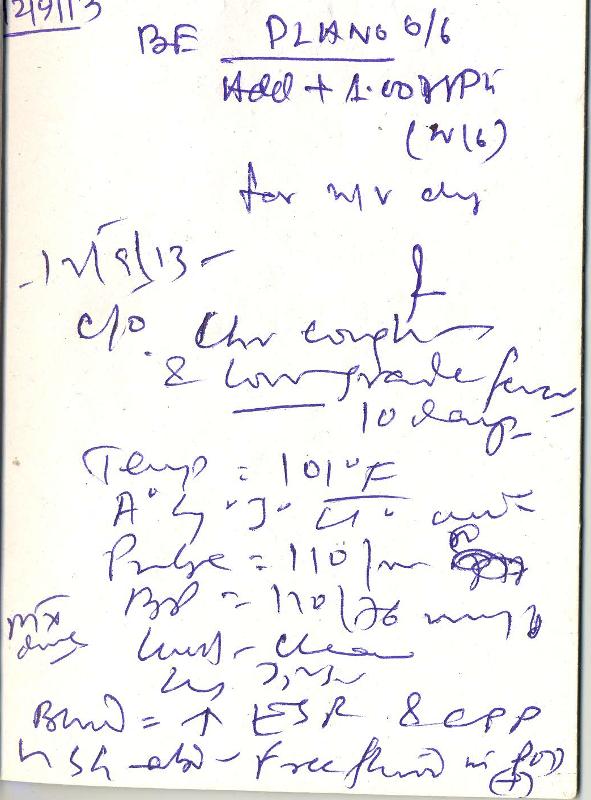 2/9/13
BE PLANO 6/6
Add + 1.00
(N/6)
for
12/9/13 -
c/o. Chr cough
& Low grade fever
10 days
Temp = 101°F
Pulse = 110/m
BP = 110/76 mmHg
Lungs - Clear
Blood = ↑ ESR & CRP
abd - Free fluid in POD
(+)